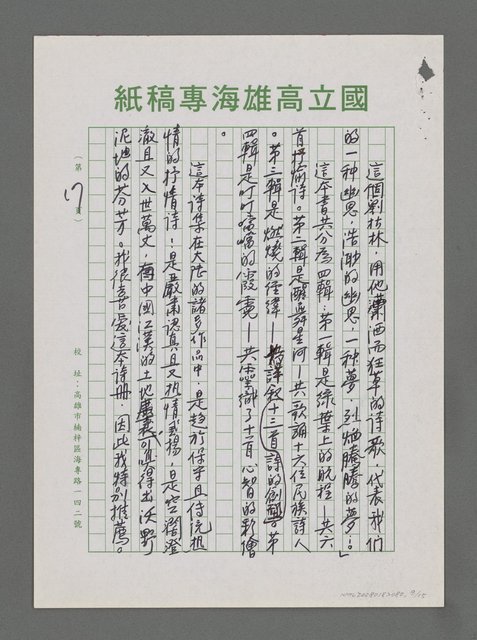 國立高雄海專稿紙
這個劉枯林,用他瀟洒而狂草的詩歌,代表我們
的一种幽思,浩渺的幽思,一种夢,烈焰騰騰的夢。」
這本書共分為四輯,第一輯是綠葉上的航程—共六
首抒情詩。第二輯是醒與舞星河—共歌誦十六位民族詩人
。第三輯是燃燒的經緯—敘十三首詩的創。第
四輯是叮叮噹噹的靈—共了十首心智的彩繪
。
這本詩集在大陸的諸多作品中,是趨於保守且传统
情的抒情詩!是嚴肅認真且又热情,是空濶澄
澈且又入世萬丈,中國江漢的土地可以嗅得出沃野
泥地的芬芳。我很喜愛這本詩冊,因此我特別推薦。
(第17頁)
校址:高雄市楠梓區海專路一四二號